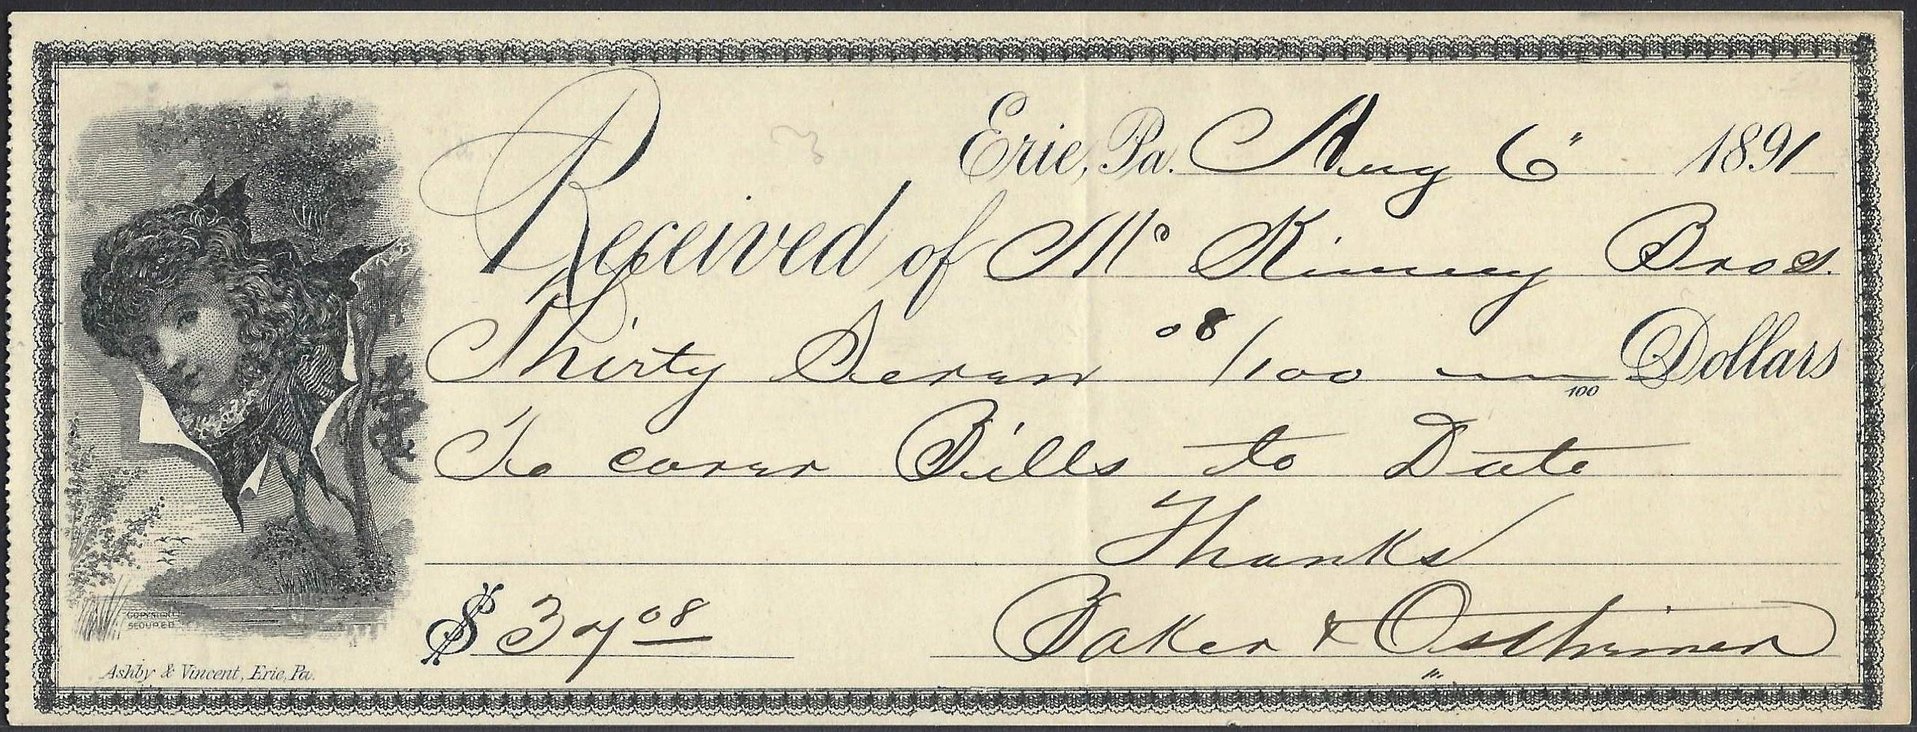 Erie, Pa. Aug 6" 1891
Received of Mc Kinney Bros.
Thirty Seven 08/100 — 100 Dollars
To cover Bills to Date
Thanks
$ 37 08 Baker & Ostheimer
COPYRIGHT
SECURED
Ashby & Vincent, Erie, Pa.